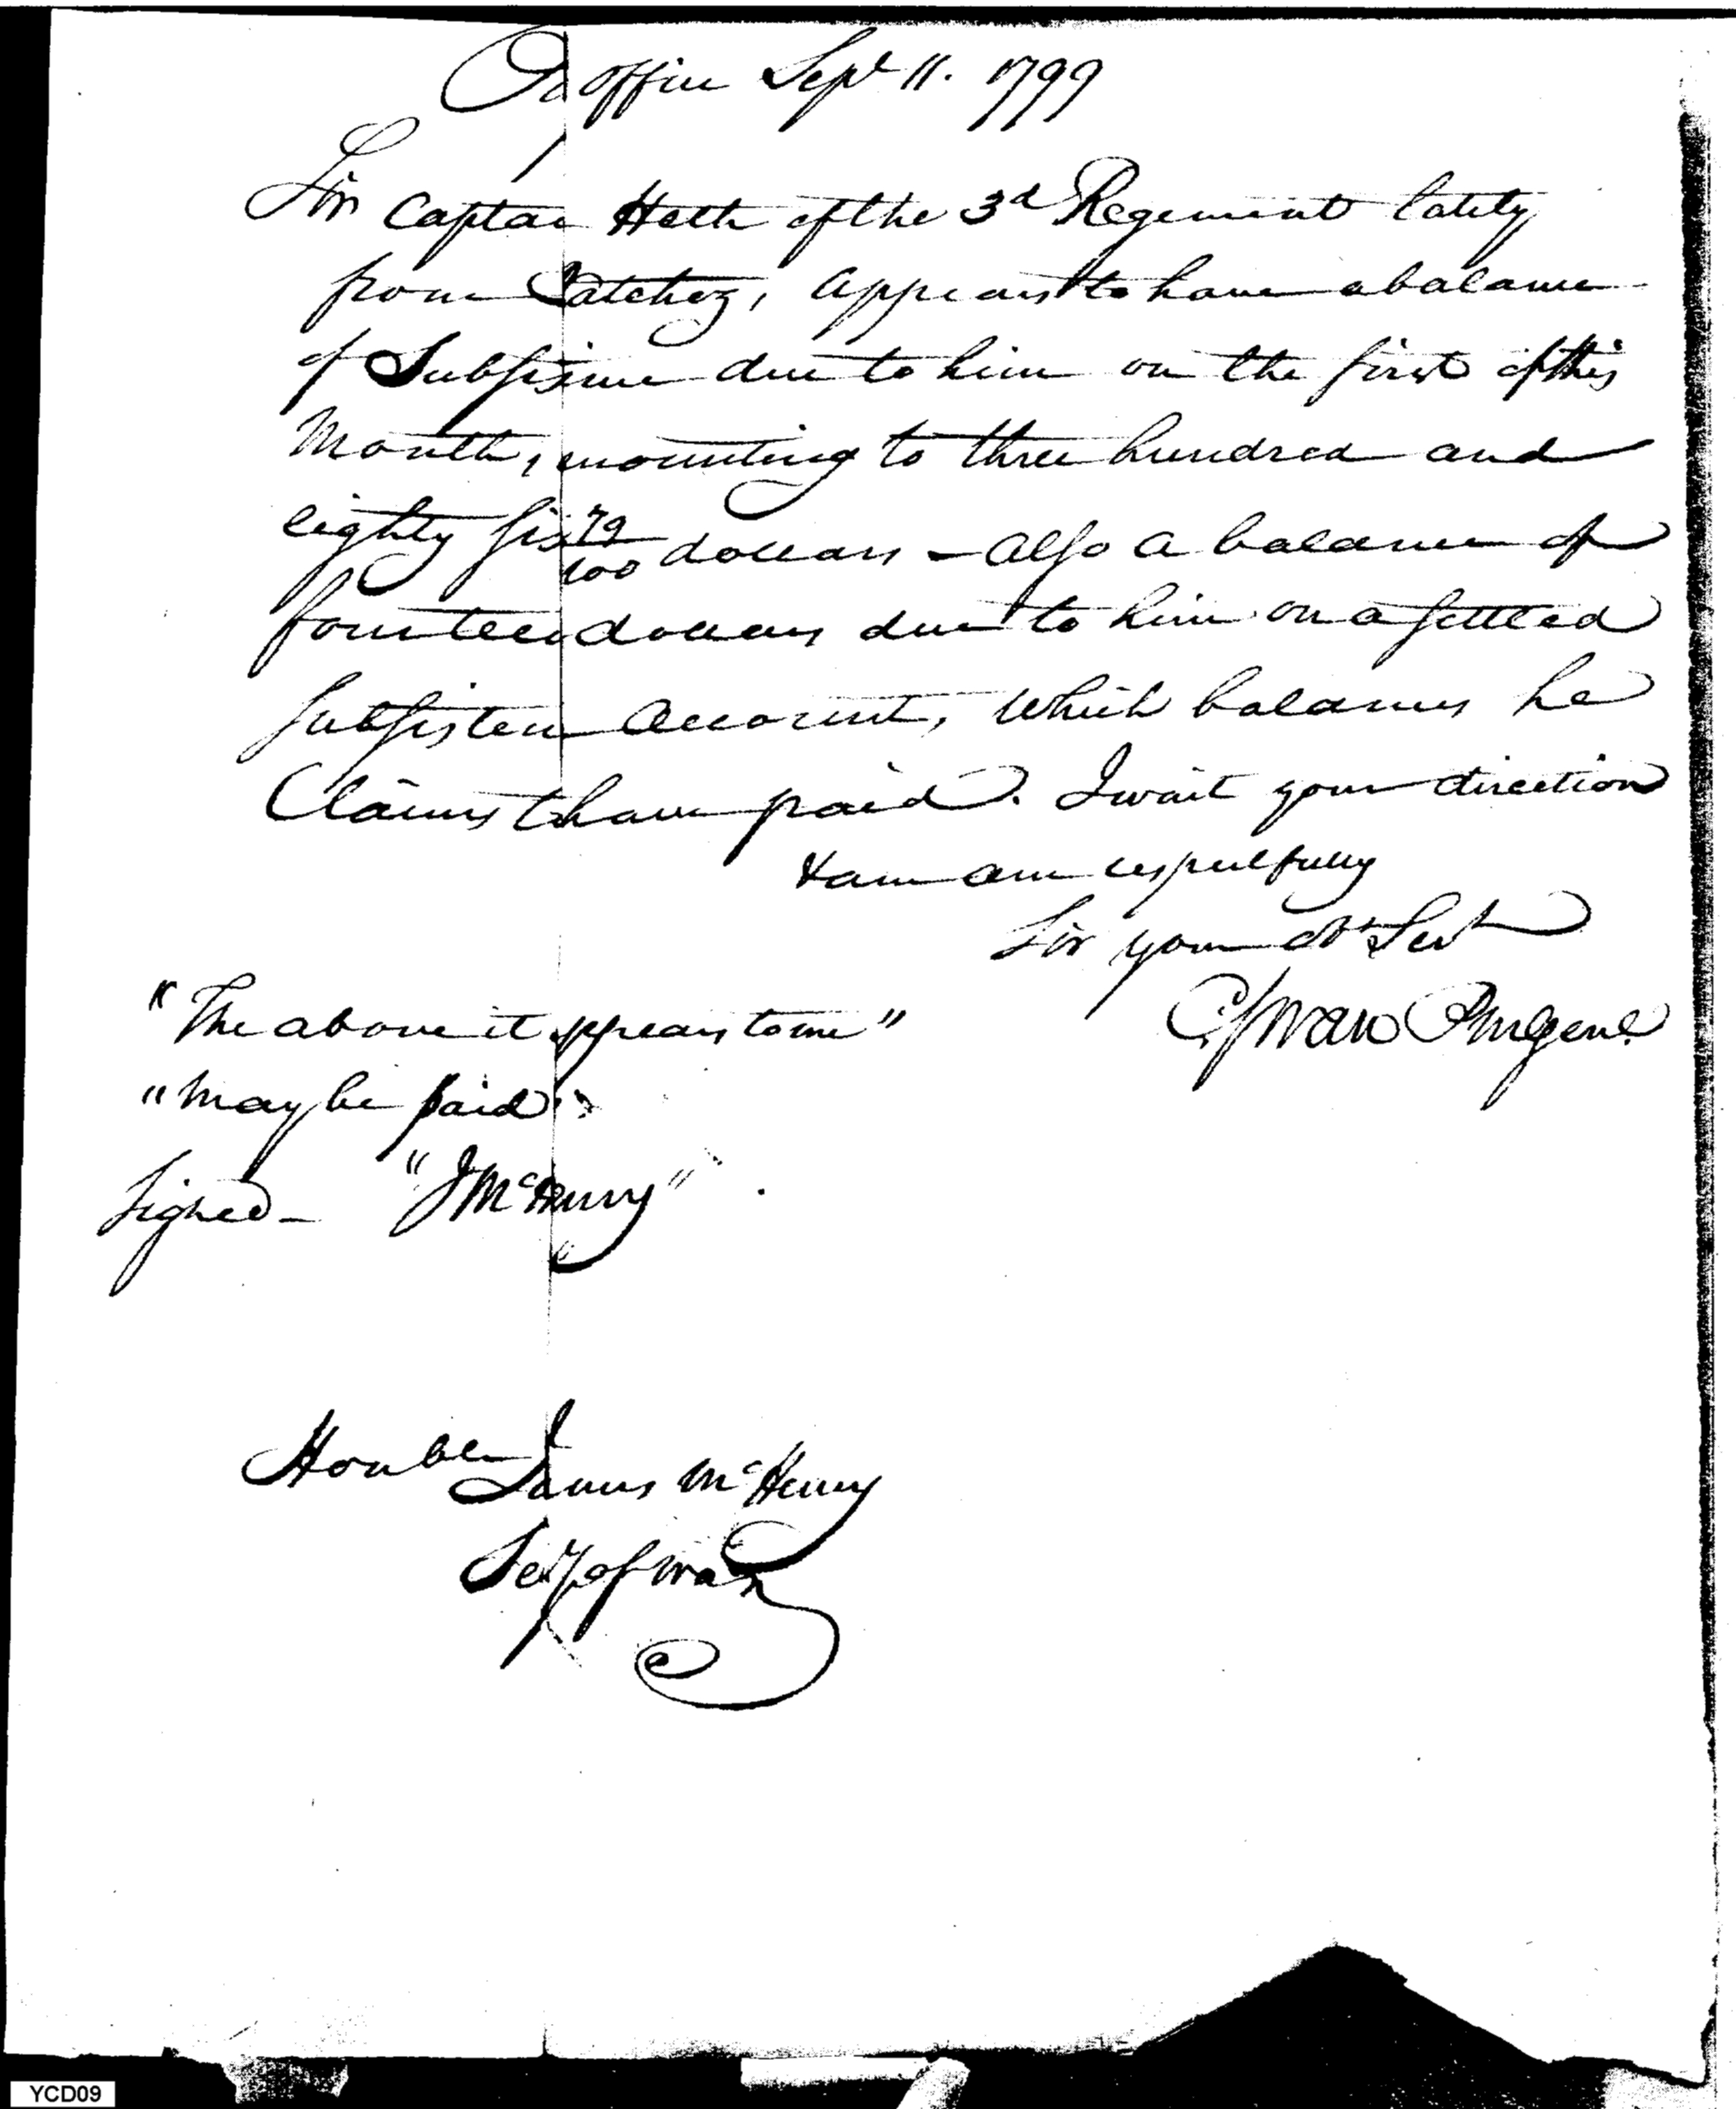 Pd Office Sept 11. 1799
Sir Captan Heth of the 3d Regement lately
from Natchez, appears to have a balance
of Subsistence due to him on the first of this
Month, amounting to three hundred and
eighty six 79/100 dollars - also a balance of
fourteen dollars due to him on a settled
Subsistence Account, which balances he
Claims to have paid. I wait your direction
& am respectfully
Sir your obt Servt
C. Swan PmGenl.
"The above it appears to me"
"may be paid"
Signed - "J McHenry"
Honble James McHenry
Secy of War
YCD09